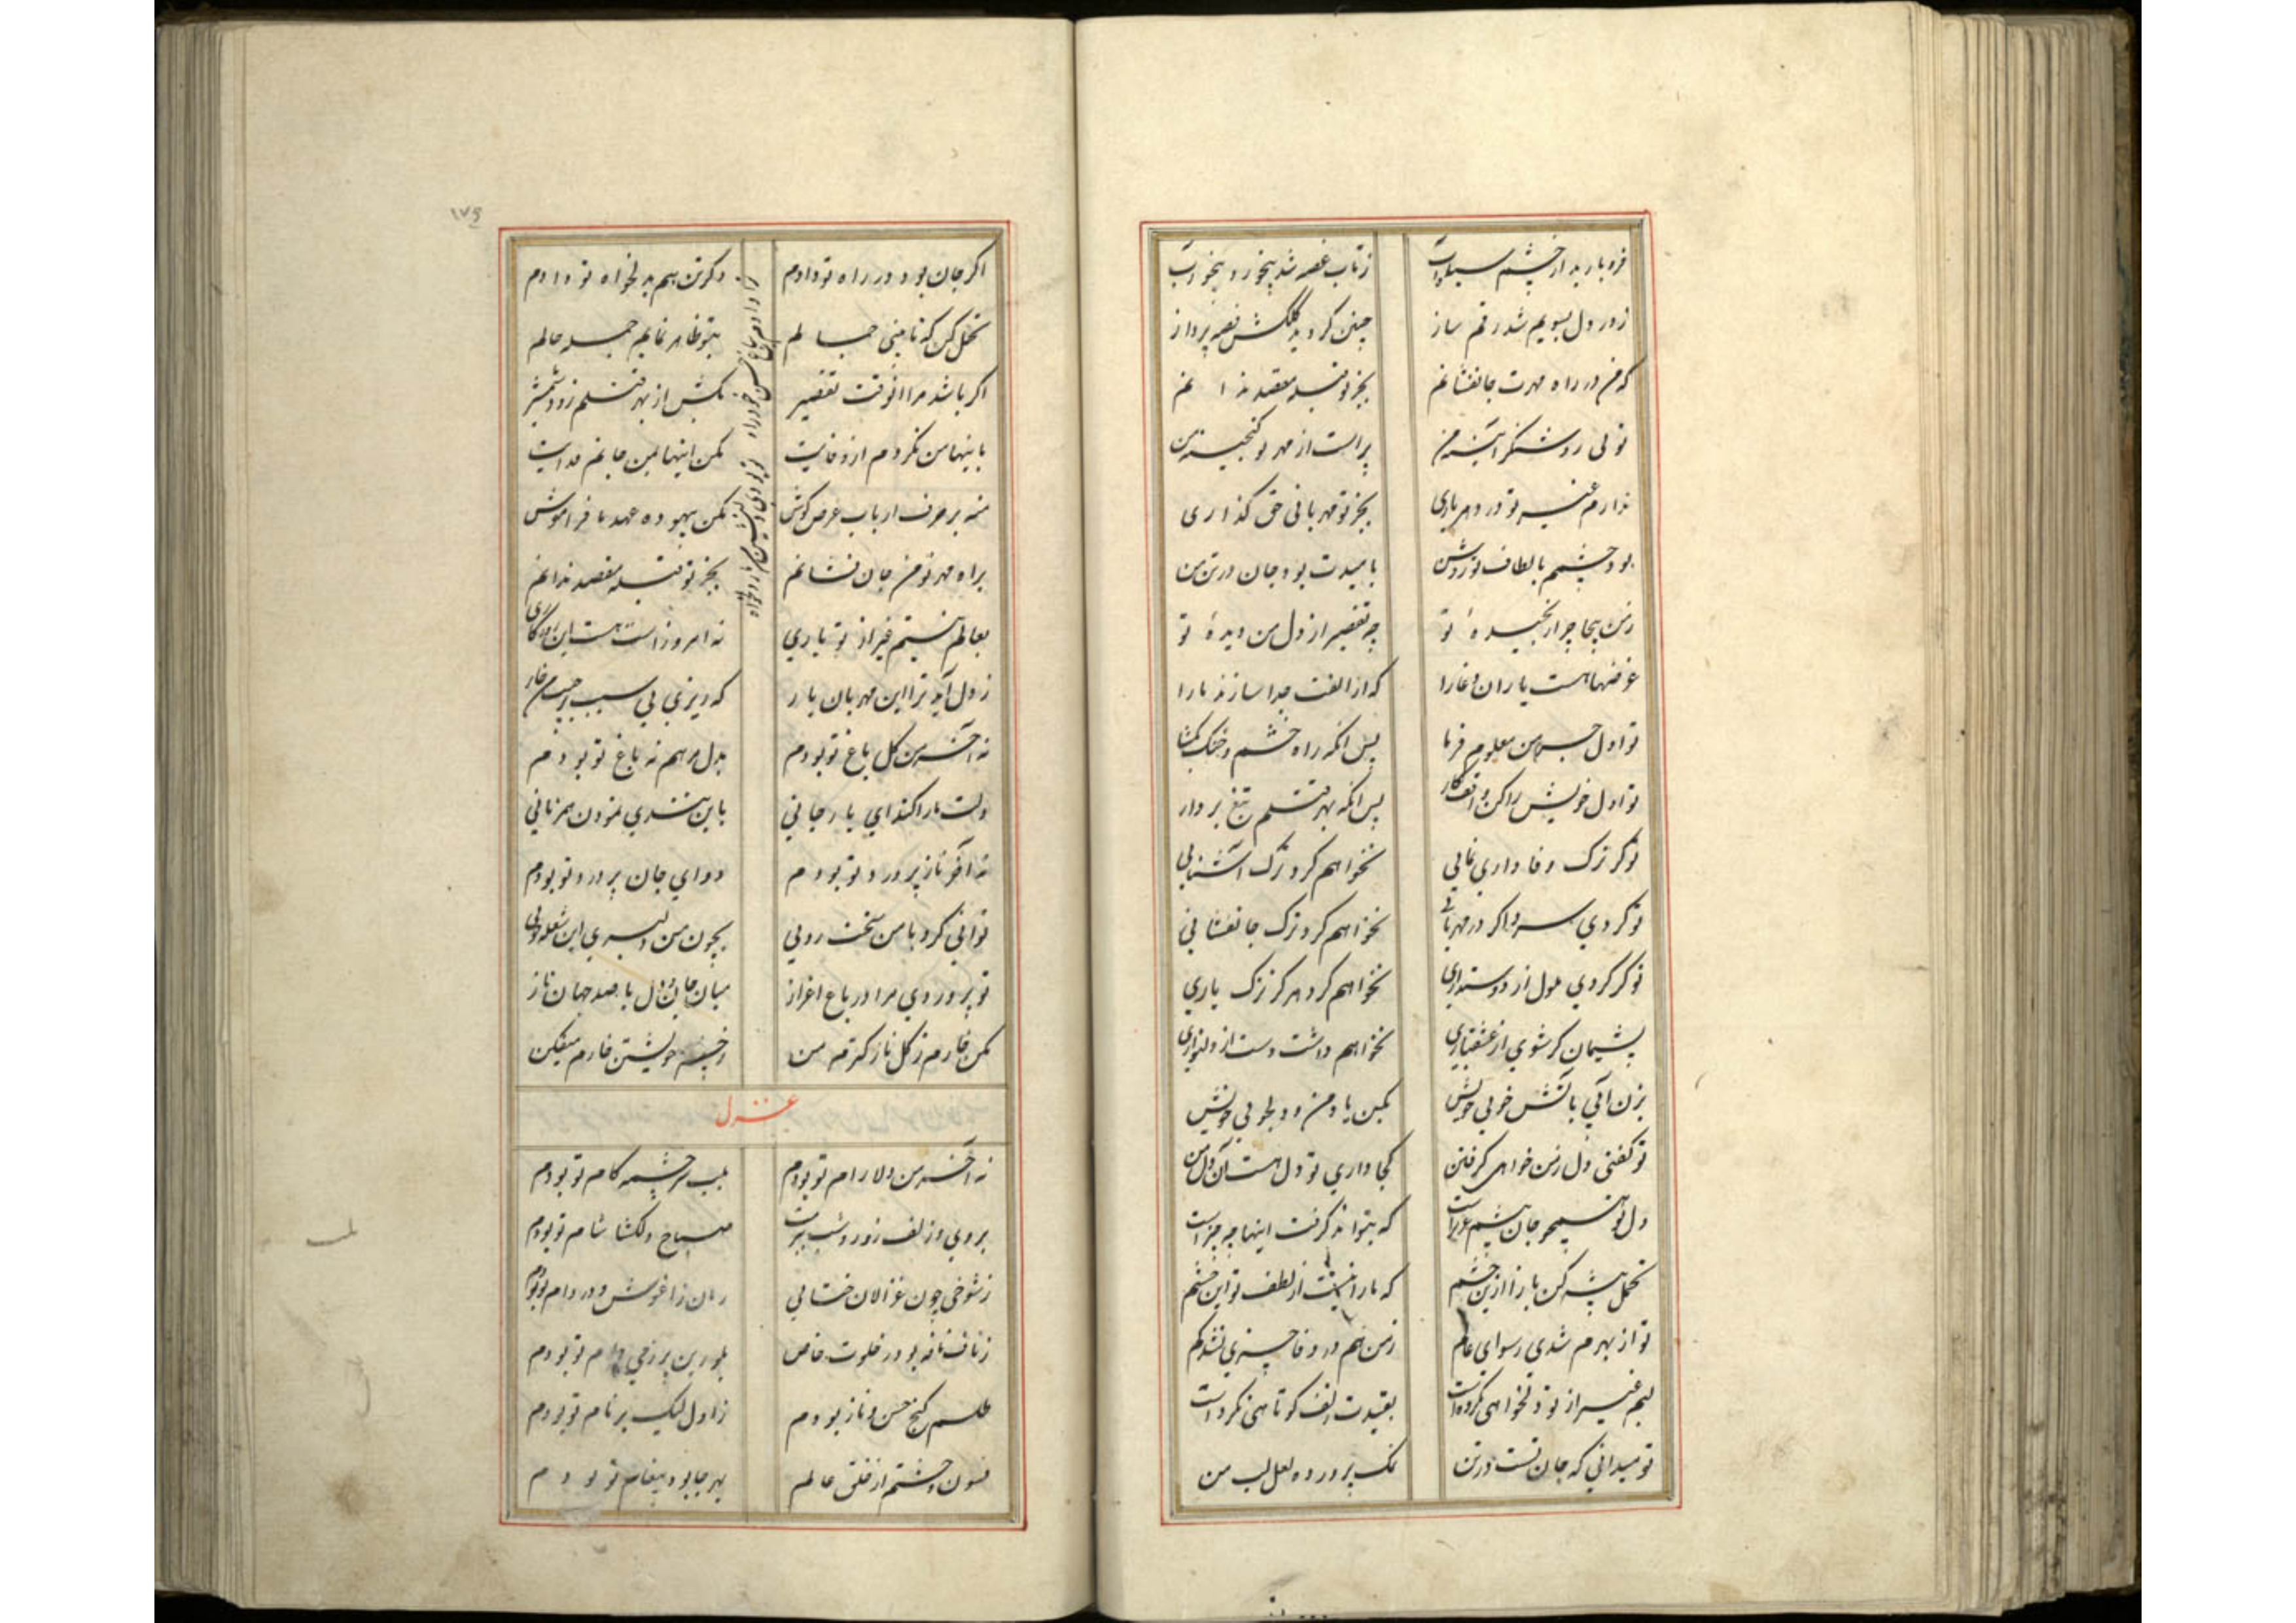 زتاب غصه شد بیخورد و بیخواب
زدرد دل بسویم شد رقم ساز چنین کرد به کلکش نغمه پرداز
که من در راه مهرت جانفشانم بجز تو قبله مقصد ندانم
توئی روشنگر آئینه من پر است از مهر تو گنجینه من
ندارم غیر تو در دهر یاری بجز تو مهربانی حق گذاری
بود چشمم بالطاف تو روشن بامیدت بود جان در تن من
زمن بیجا چرا رنجیده تو چه تقصیر از دل من دیده تو
غرضهاهست یاران دغا را که از الفت جدا سازند ما را
تو اول جرم من معلوم فرما پس انگه راه خشم و جنگ بگشا
تو اول خویش را کن پس انگه بهر قتلم تیغ بردار
تو گر ترک وفاداری نمایی نخواهم کرد ترک آشنایی
تو کردی سرد اگر در مهربانی نخواهم کرد ترک جانفشانی
تو گر کردی ملول از دوستداری نخواهم کرد هرگز ترک یاری
پشیمان گر شوی از عشقبازی نخواهم داشت دست از دلنوازی
بزن آبی بآتش خوبی خویش ببین یاد من و دلجویی خویش
تو گفتی دل زمن خواهی گرفتن کجا داری تو دل هست آن دل من
دل تو همچو جان پیشم عزیز است که بتواند گرفت اینها چه چیز است
تحمل پیشه کن باز آ ازین خشم که ما را نیست از لطف تو این چشم
تو از بهرم شدی رسوای عام زمن هم در وفا چیزی نشد کم
لبم غیر از تو دلخواهی نکرده است بقیدت زلف کوتاهی نکرده است
تو میدانی که جان تست در تن نمک پرورده لعل لب من
۱۷۶
اگر جان بود در راه تو دادم دگر تن هم بدلخواه تو دادم
تحمل کن که تا بینی جمالم بتو ظاهر نمایم جمله حالم
اگر باشد مرا آنوقت تقصیر بکش از بهر قتلم زود شمشیر
باینها من نکردم از وفایت مکن اینها بمن جانم فدایت
منه بر حرف ارباب غرض گوش مکن بیهوده عهد ما فراموش
براه مهر تو من جان فشانم بجز تو قبله مقصد ندانم
بعالم نیستم غیر از تو یاری نه امروز است هست این روزگاری
ز دل آید ترا این مهربان یار که ریزی بی سبب در جیب من خار
نه آخر من گل باغ تو بودم بدل مرهم نه باغ تو بودم
دلت را کند ای یار جانی باین تندی نمودن همزبانی
نه آخر ناز پرورد تو بودم دوای جان پر درد تو بودم
توانی کرد با من سخت رویی بچون من دلبری این شعله خویی
تو پروردی مرا در باغ اعزاز میان جان و دل با صد جهان ناز
مکن خارم ز گل نازکترم من ز چشم خویشتن خارم میفکن
غزل
نه آخر من دلارام تو بودم بلب سرچشمه کام تو بودم
بروی و زلف روز و شب صباح دلگشا شام تو بودم
ز شوخی چون غزالان ختایی رمان ز آغوش و در دام تو بودم
ز ناف نافه بو در خلوت خاص بلورین پر ز می جام تو بودم
طلسم گنج حسن و ناز بودم ز اول لیک بر نام تو بودم
فسون وحشتم از خلق عالم بهر جا بود پیغام تو بودم